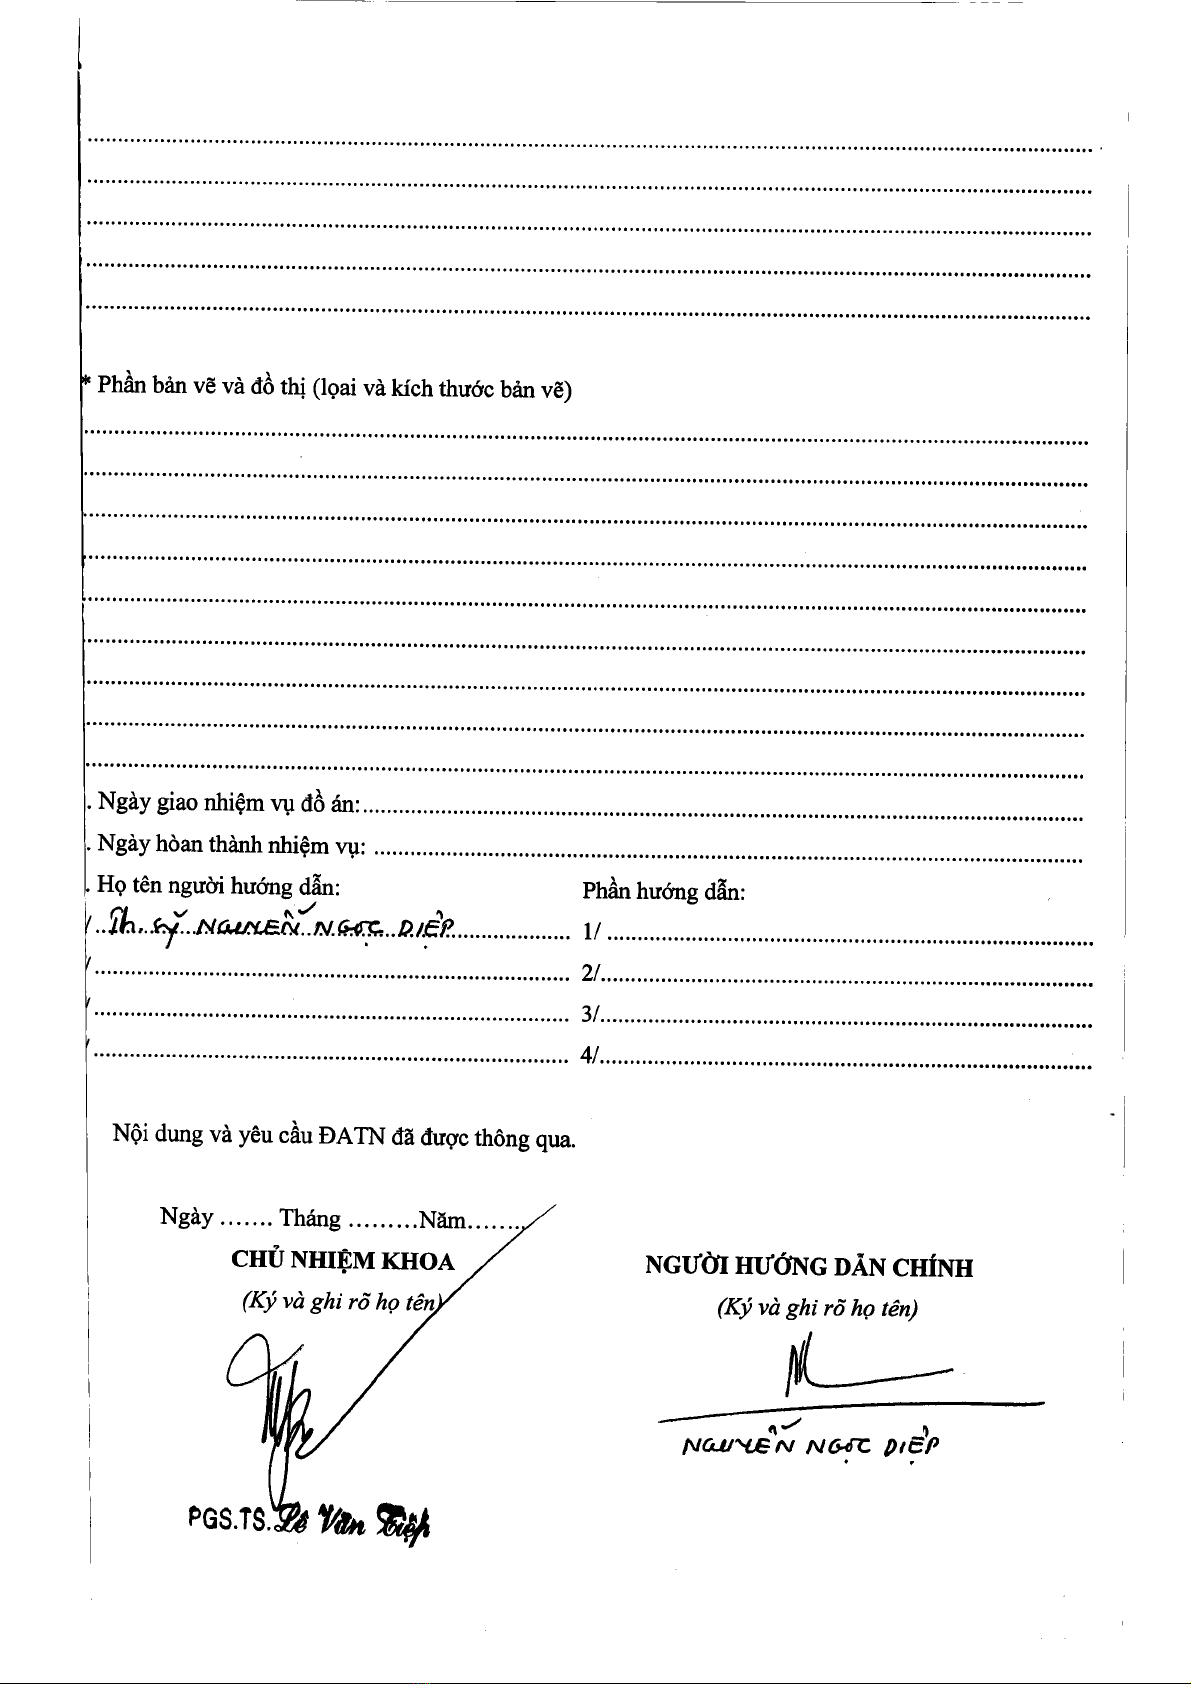 * Phần bản vẽ và đồ thị (lọai và kích thước bản vẽ)
. Ngày giao nhiệm vụ đồ án:
. Ngày hòan thành nhiệm vụ:
. Họ tên người hướng dẫn: Phần hướng dẫn:
/ Th. sỹ NGUYỄN NGỌC DIỆP 1/
/ 2/
/ 3/
/ 4/
Nội dung và yêu cầu ĐATN đã được thông qua.
Ngày ....... Tháng .........Năm........
CHỦ NHIỆM KHOA NGƯỜI HƯỚNG DẪN CHÍNH
(Ký và ghi rõ họ tên) (Ký và ghi rõ họ tên)
NGUYỄN NGỌC DIỆP
PGS.TS. Lê Văn Tiệp